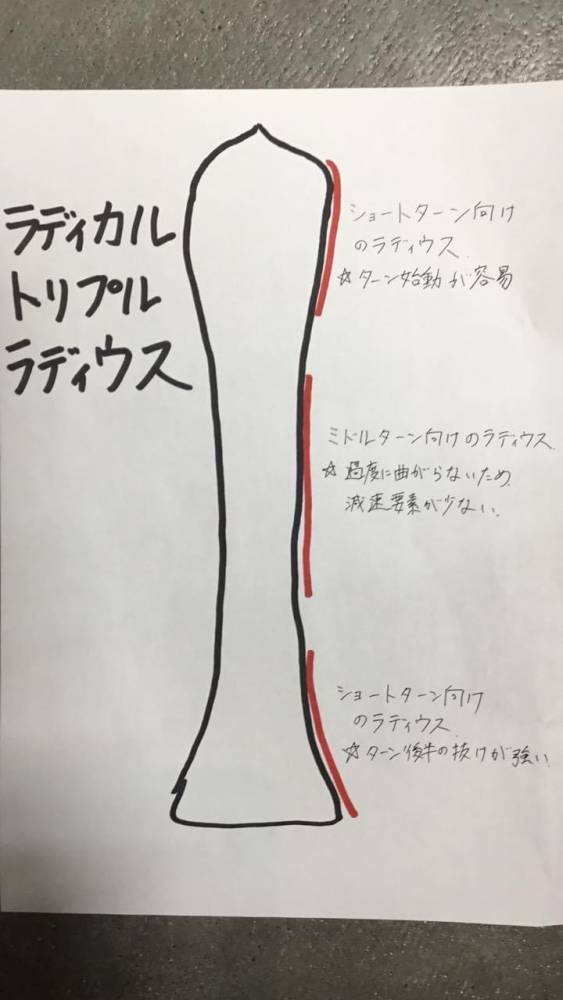 ラディカル
トリプル
ラディウス
ショートターン向け
のラディウス
☆ターン始動が容易
ミドルターン向けのラディウス
☆過度に曲がらないため
減速要素が少ない
ショートターン向け
のラディウス
☆ターン後半の抜けが強い